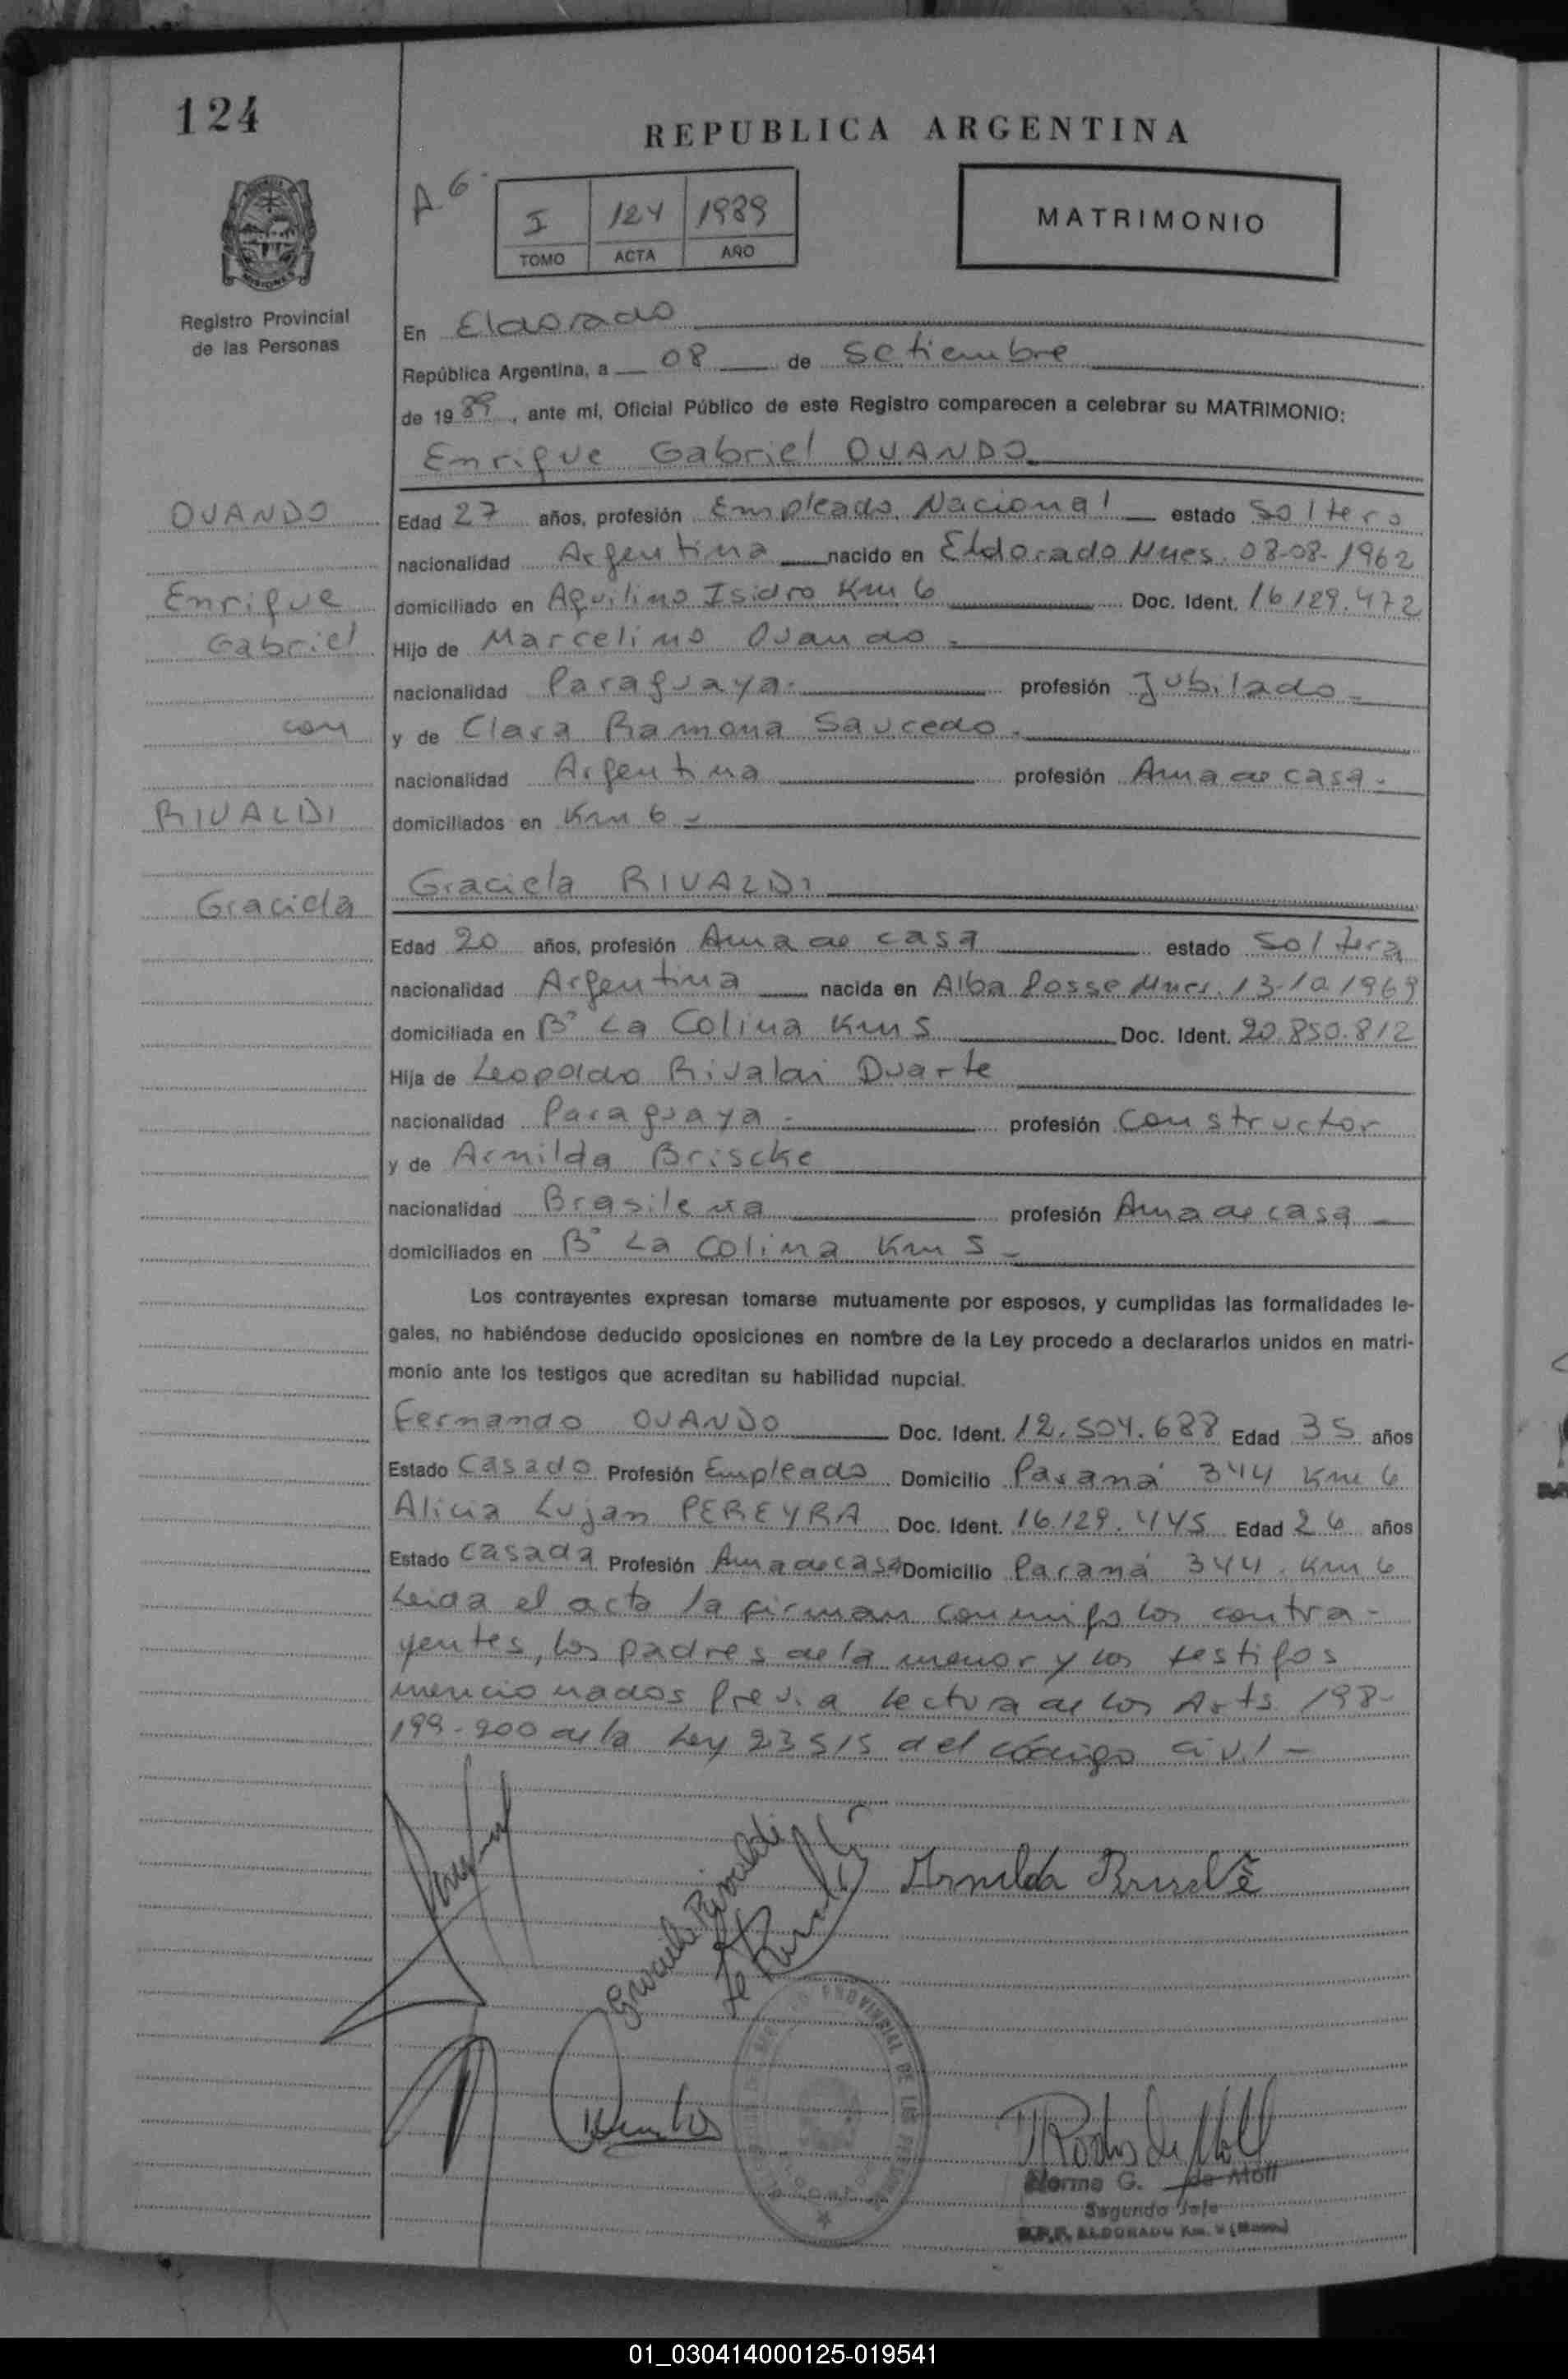 124
REPUBLICA ARGENTINA
A 6
I 124 1989
TOMO ACTA AÑO
MATRIMONIO
Registro Provincial
de las Personas
En Eldorado
República Argentina, a 08 de Setiembre
de 1989, ante mí, Oficial Público de este Registro comparecen a celebrar su MATRIMONIO:
Enrique Gabriel OVANDO
OVANDO
Enrique
Gabriel
con
RIVALDI
Graciela
Edad 27 años, profesión Empleado Nacional estado Soltero
nacionalidad Argentina nacido en Eldorado Mnes. 08-08-1962
domiciliado en Aquilino Isidro Km 6 Doc. Ident. 16129.472
Hijo de Marcelino Ovando
nacionalidad Paraguaya profesión Jubilado
y de Clara Ramona Saucedo
nacionalidad Argentina profesión Ama de casa
domiciliados en Km 6
Graciela RIVALDI
Edad 20 años, profesión Ama de casa estado Soltera
nacionalidad Argentina nacida en Alba Posse Mnes. 13-10 1969
domiciliada en B° La Colina Km 5 Doc. Ident. 20.850.812
Hija de Leopoldo Rivaldi Duarte
nacionalidad Paraguaya profesión Constructor
y de Arnilda Briscke
nacionalidad Brasilena profesión Ama de casa
domiciliados en B° La Colina Km 5
Los contrayentes expresan tomarse mutuamente por esposos, y cumplidas las formalidades le-
gales, no habiéndose deducido oposiciones en nombre de la Ley procedo a declararlos unidos en matri-
monio ante los testigos que acreditan su habilidad nupcial.
Fernando OVANDO Doc. Ident. 12.504.688 Edad 35 años
Estado Casado Profesión Empleado Domicilio Paraná 344 Km 6
Alicia Lujan PEREYRA Doc. Ident. 16.129.445 Edad 26 años
Estado Casada Profesión Ama de casa Domicilio Paraná 344. Km 6
Leida el acta la firman conmigo los contra-
yentes, los padres de la menor y los testigos
mencionados previa lectura de los Arts. 198-
199-200 de la Ley 23515 del código civil -
Graciela Rivaldi
Arnilda Briscke
Norma G. de Moll
Segundo Jefe
R.P.P. ELDORADO Km. 9 (Mnes.)
01_030414000125-019541